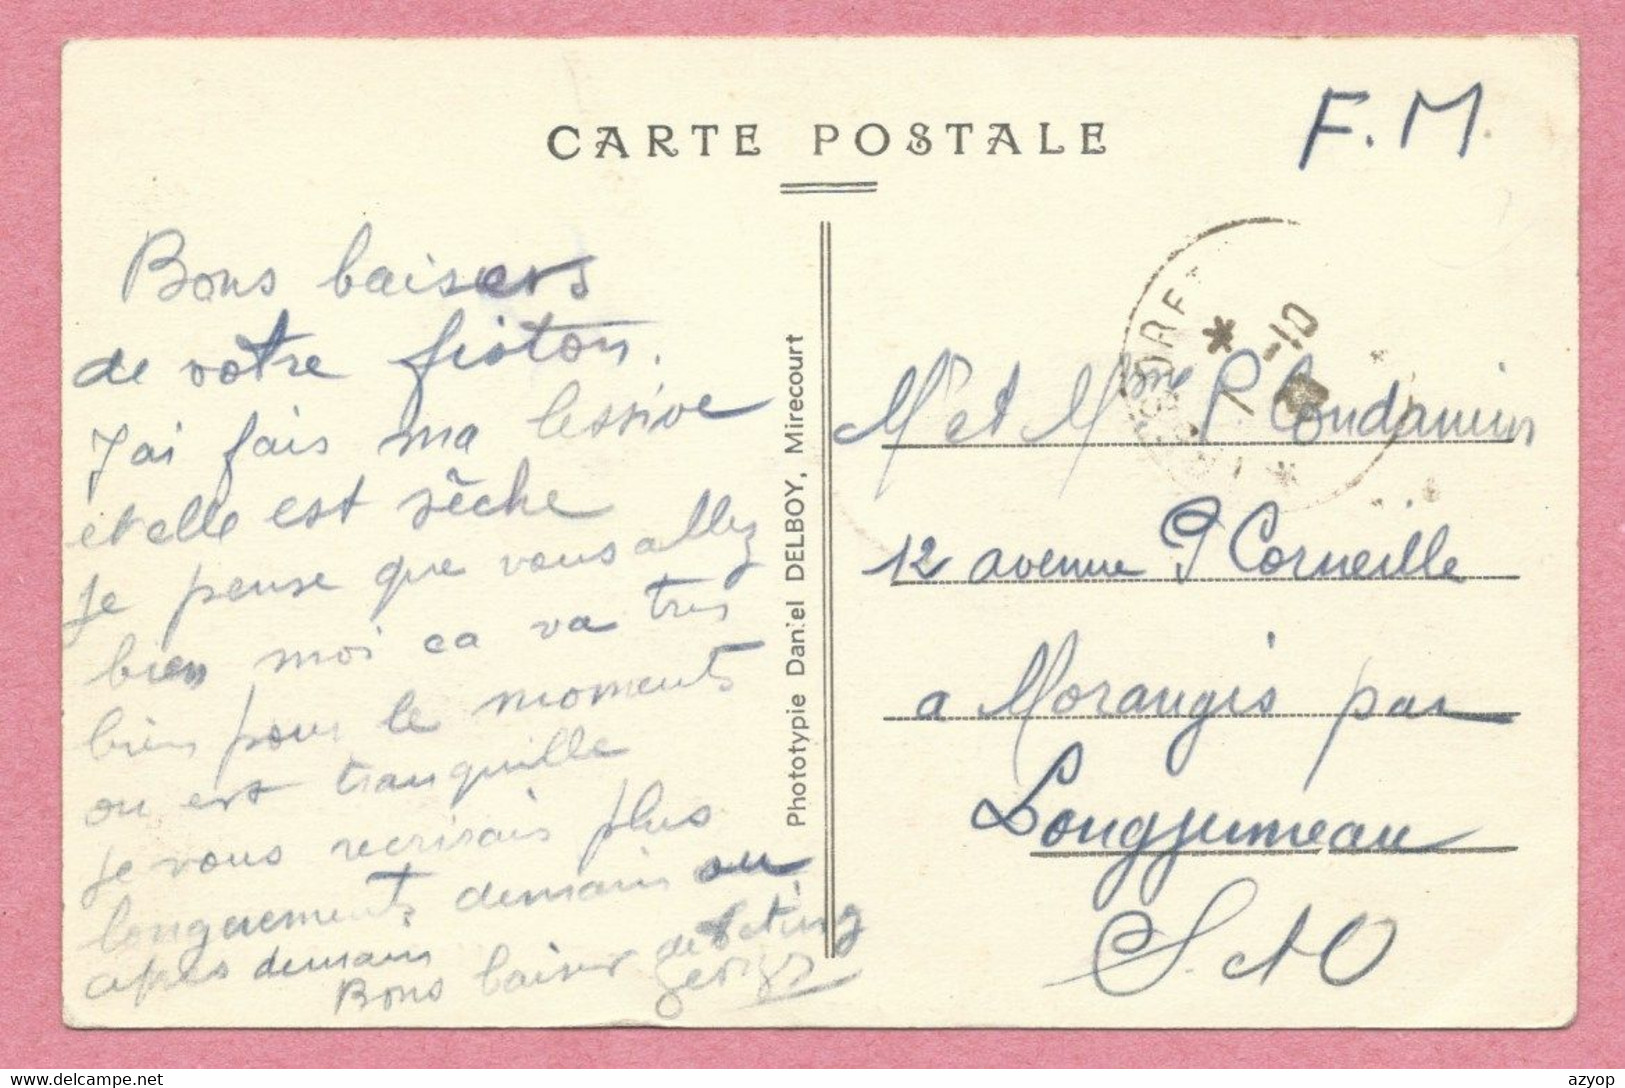 CARTE POSTALE
F.M.
Bons baisers
de votre fiston.
J'ai fais ma lessive
et elle est sèche
Je pense que vous allez
bien moi ca va tres
bien pour le moments
on est tranquille
je vous recrirais plus
longuements demain ou
après demain
Bons baiser de
Georges
Phototypie Daniel DELBOY, Mirecourt
-10
Mr et Mme P. Condamin
12 avenue P Corneille
a Morangis par
Longjumeau
S. et O
azyop